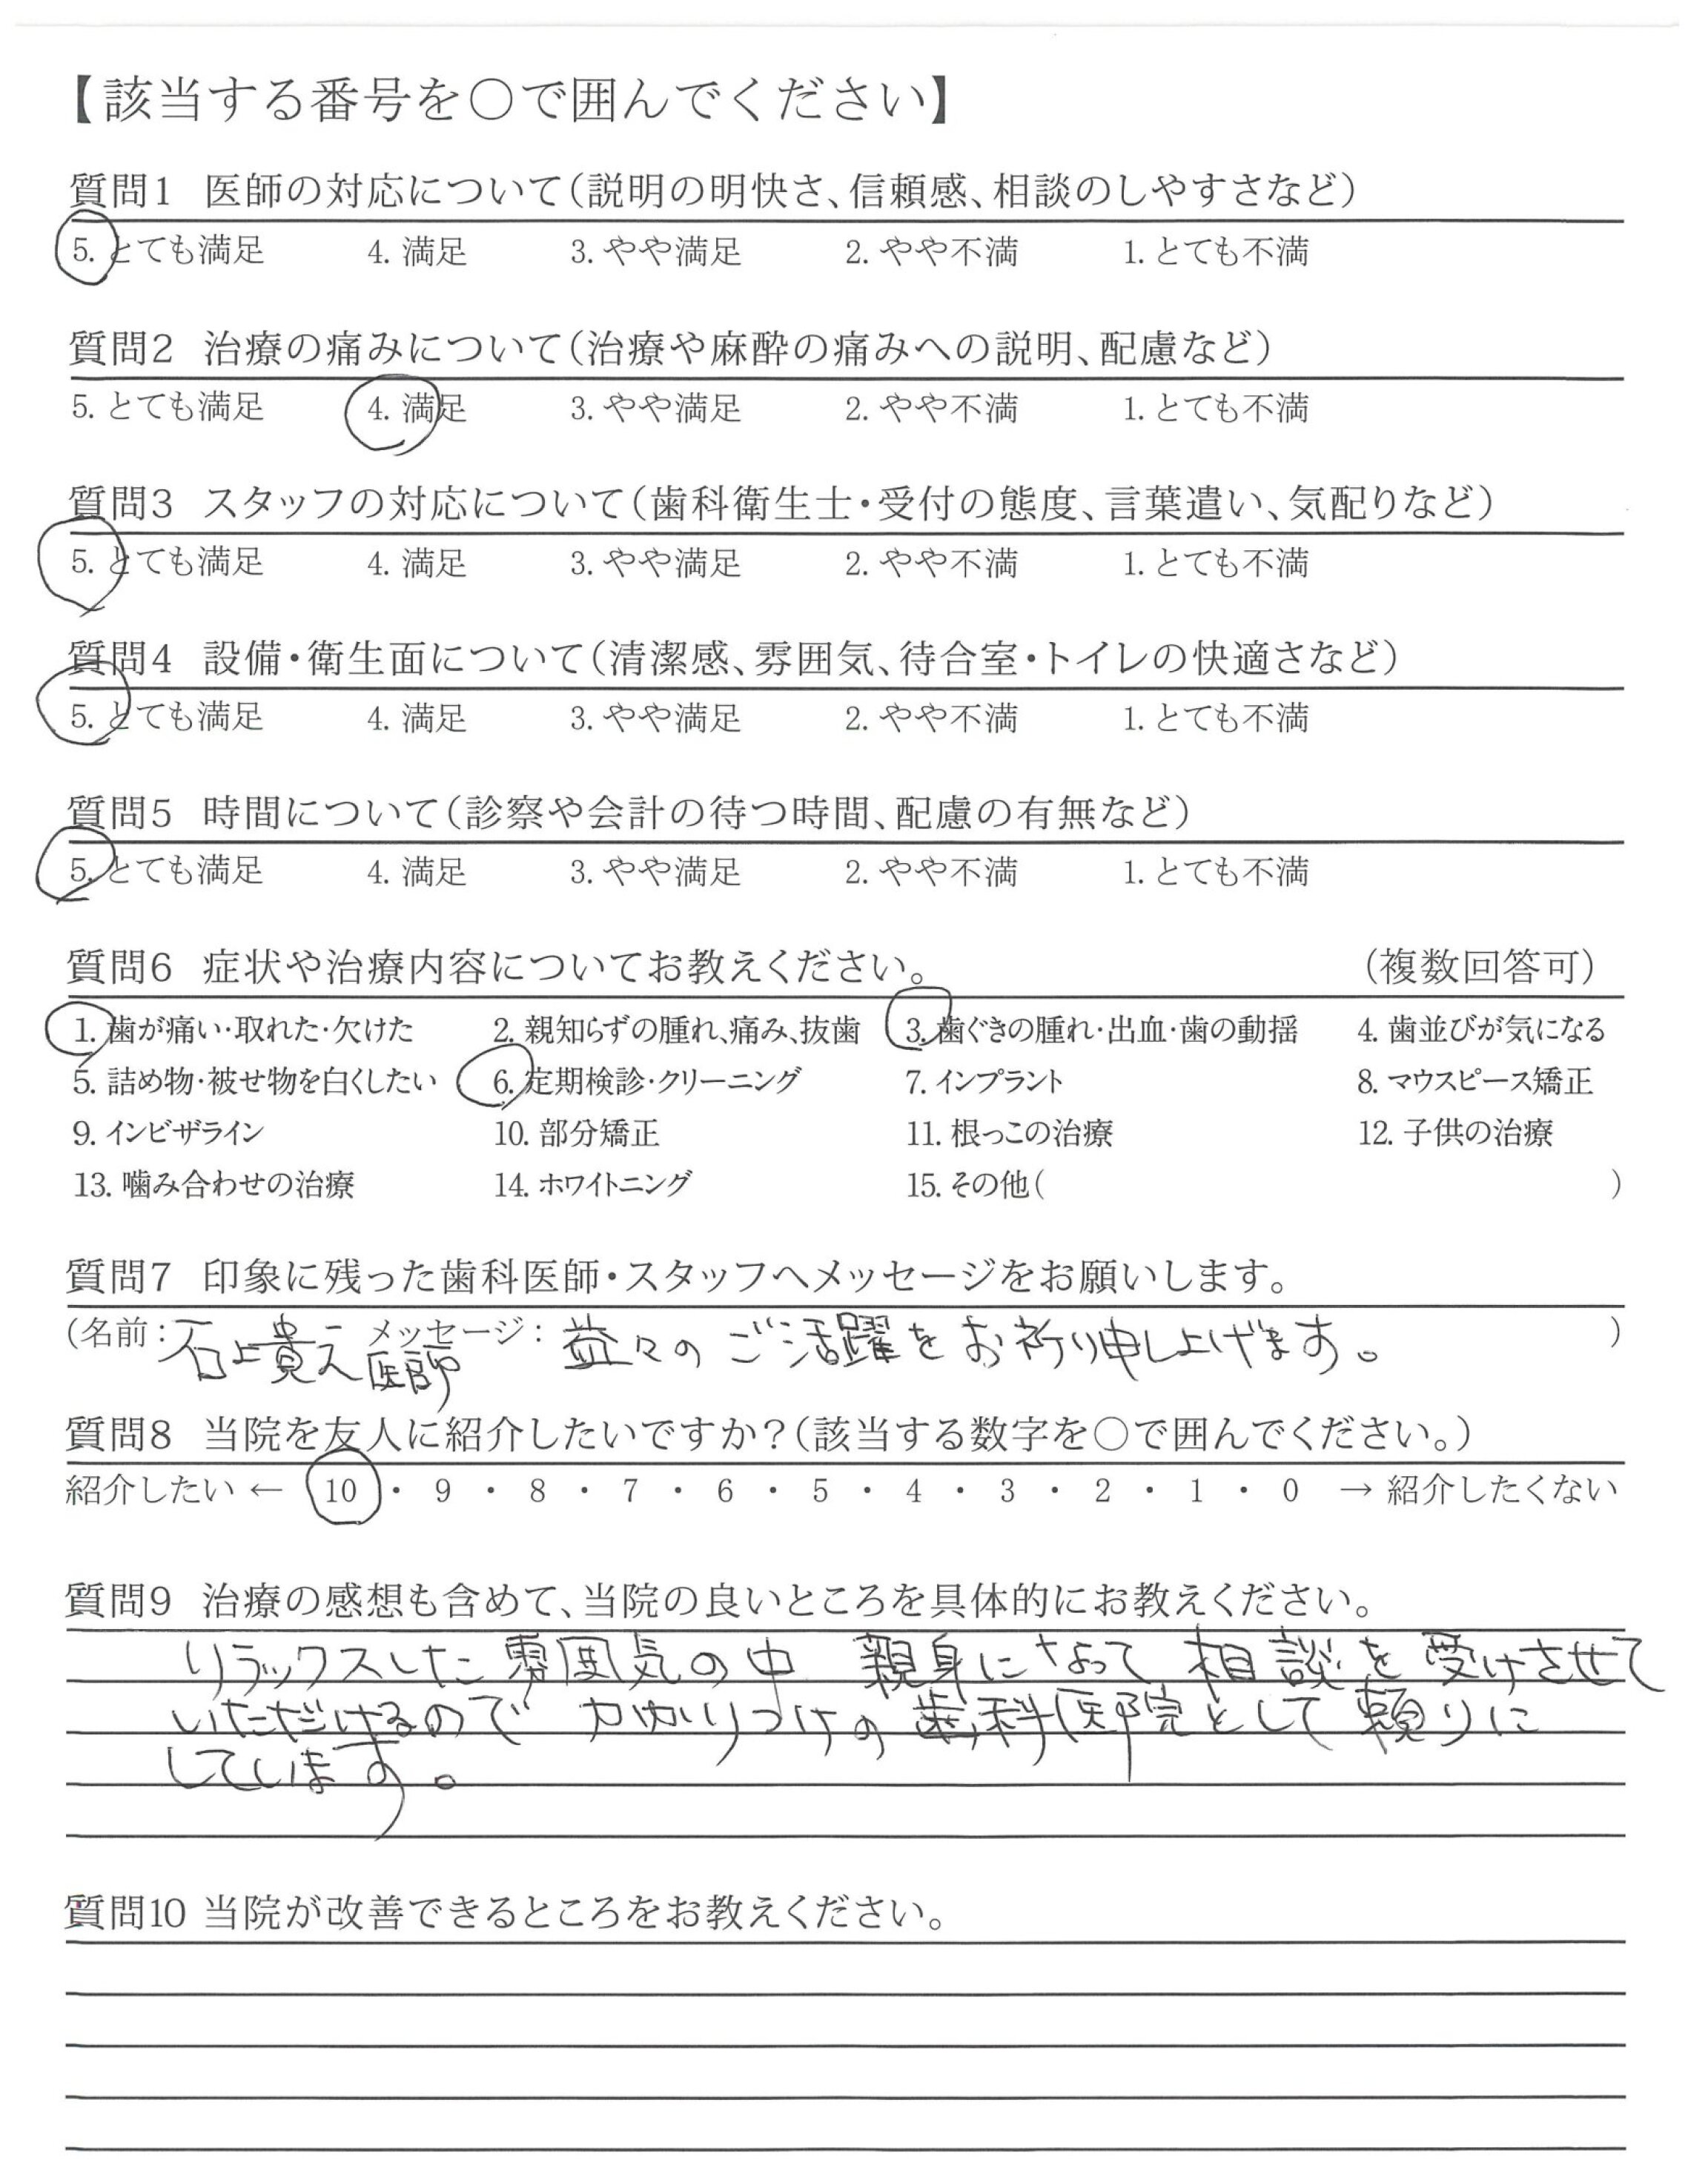 【該当する番号を〇で囲んでください】
質問1 医師の対応について(説明の明快さ、信頼感、相談のしやすさなど)
5. とても満足 4. 満足 3. やや満足 2. やや不満 1. とても不満
質問2 治療の痛みについて(治療や麻酔の痛みへの説明、配慮など)
5. とても満足 4. 満足 3. やや満足 2. やや不満 1. とても不満
質問3 スタッフの対応について(歯科衛生士・受付の態度、言葉遣い、気配りなど)
5. とても満足 4. 満足 3. やや満足 2. やや不満 1. とても不満
質問4 設備・衛生面について(清潔感、雰囲気、待合室・トイレの快適さなど)
5. とても満足 4. 満足 3. やや満足 2. やや不満 1. とても不満
質問5 時間について(診察や会計の待つ時間、配慮の有無など)
5. とても満足 4. 満足 3. やや満足 2. やや不満 1. とても不満
質問6 症状や治療内容についてお教えください。 (複数回答可)
1. 歯が痛い・取れた・欠けた 2. 親知らずの腫れ、痛み、抜歯 3. 歯ぐきの腫れ・出血・歯の動揺 4. 歯並びが気になる
5. 詰め物・被せ物を白くしたい 6. 定期検診・クリーニング 7. インプラント 8. マウスピース矯正
9. インビザライン 10. 部分矯正 11. 根っこの治療 12. 子供の治療
13. 噛み合わせの治療 14. ホワイトニング 15. その他( )
質問7 印象に残った歯科医師・スタッフへメッセージをお願いします。
(名前: 石上貴之医師 メッセージ: 益々のご活躍をお祈り申し上げます。 )
質問8 当院を友人に紹介したいですか?(該当する数字を〇で囲んでください。)
紹介したい ← 10 ・ 9 ・ 8 ・ 7 ・ 6 ・ 5 ・ 4 ・ 3 ・ 2 ・ 1 ・ 0 → 紹介したくない
質問9 治療の感想も含めて、当院の良いところを具体的にお教えください。
リラックスした雰囲気の中 親身になって相談を受けさせて
いただけるので かかりつけの歯科医院として頼りに
しています。
質問10 当院が改善できるところをお教えください。